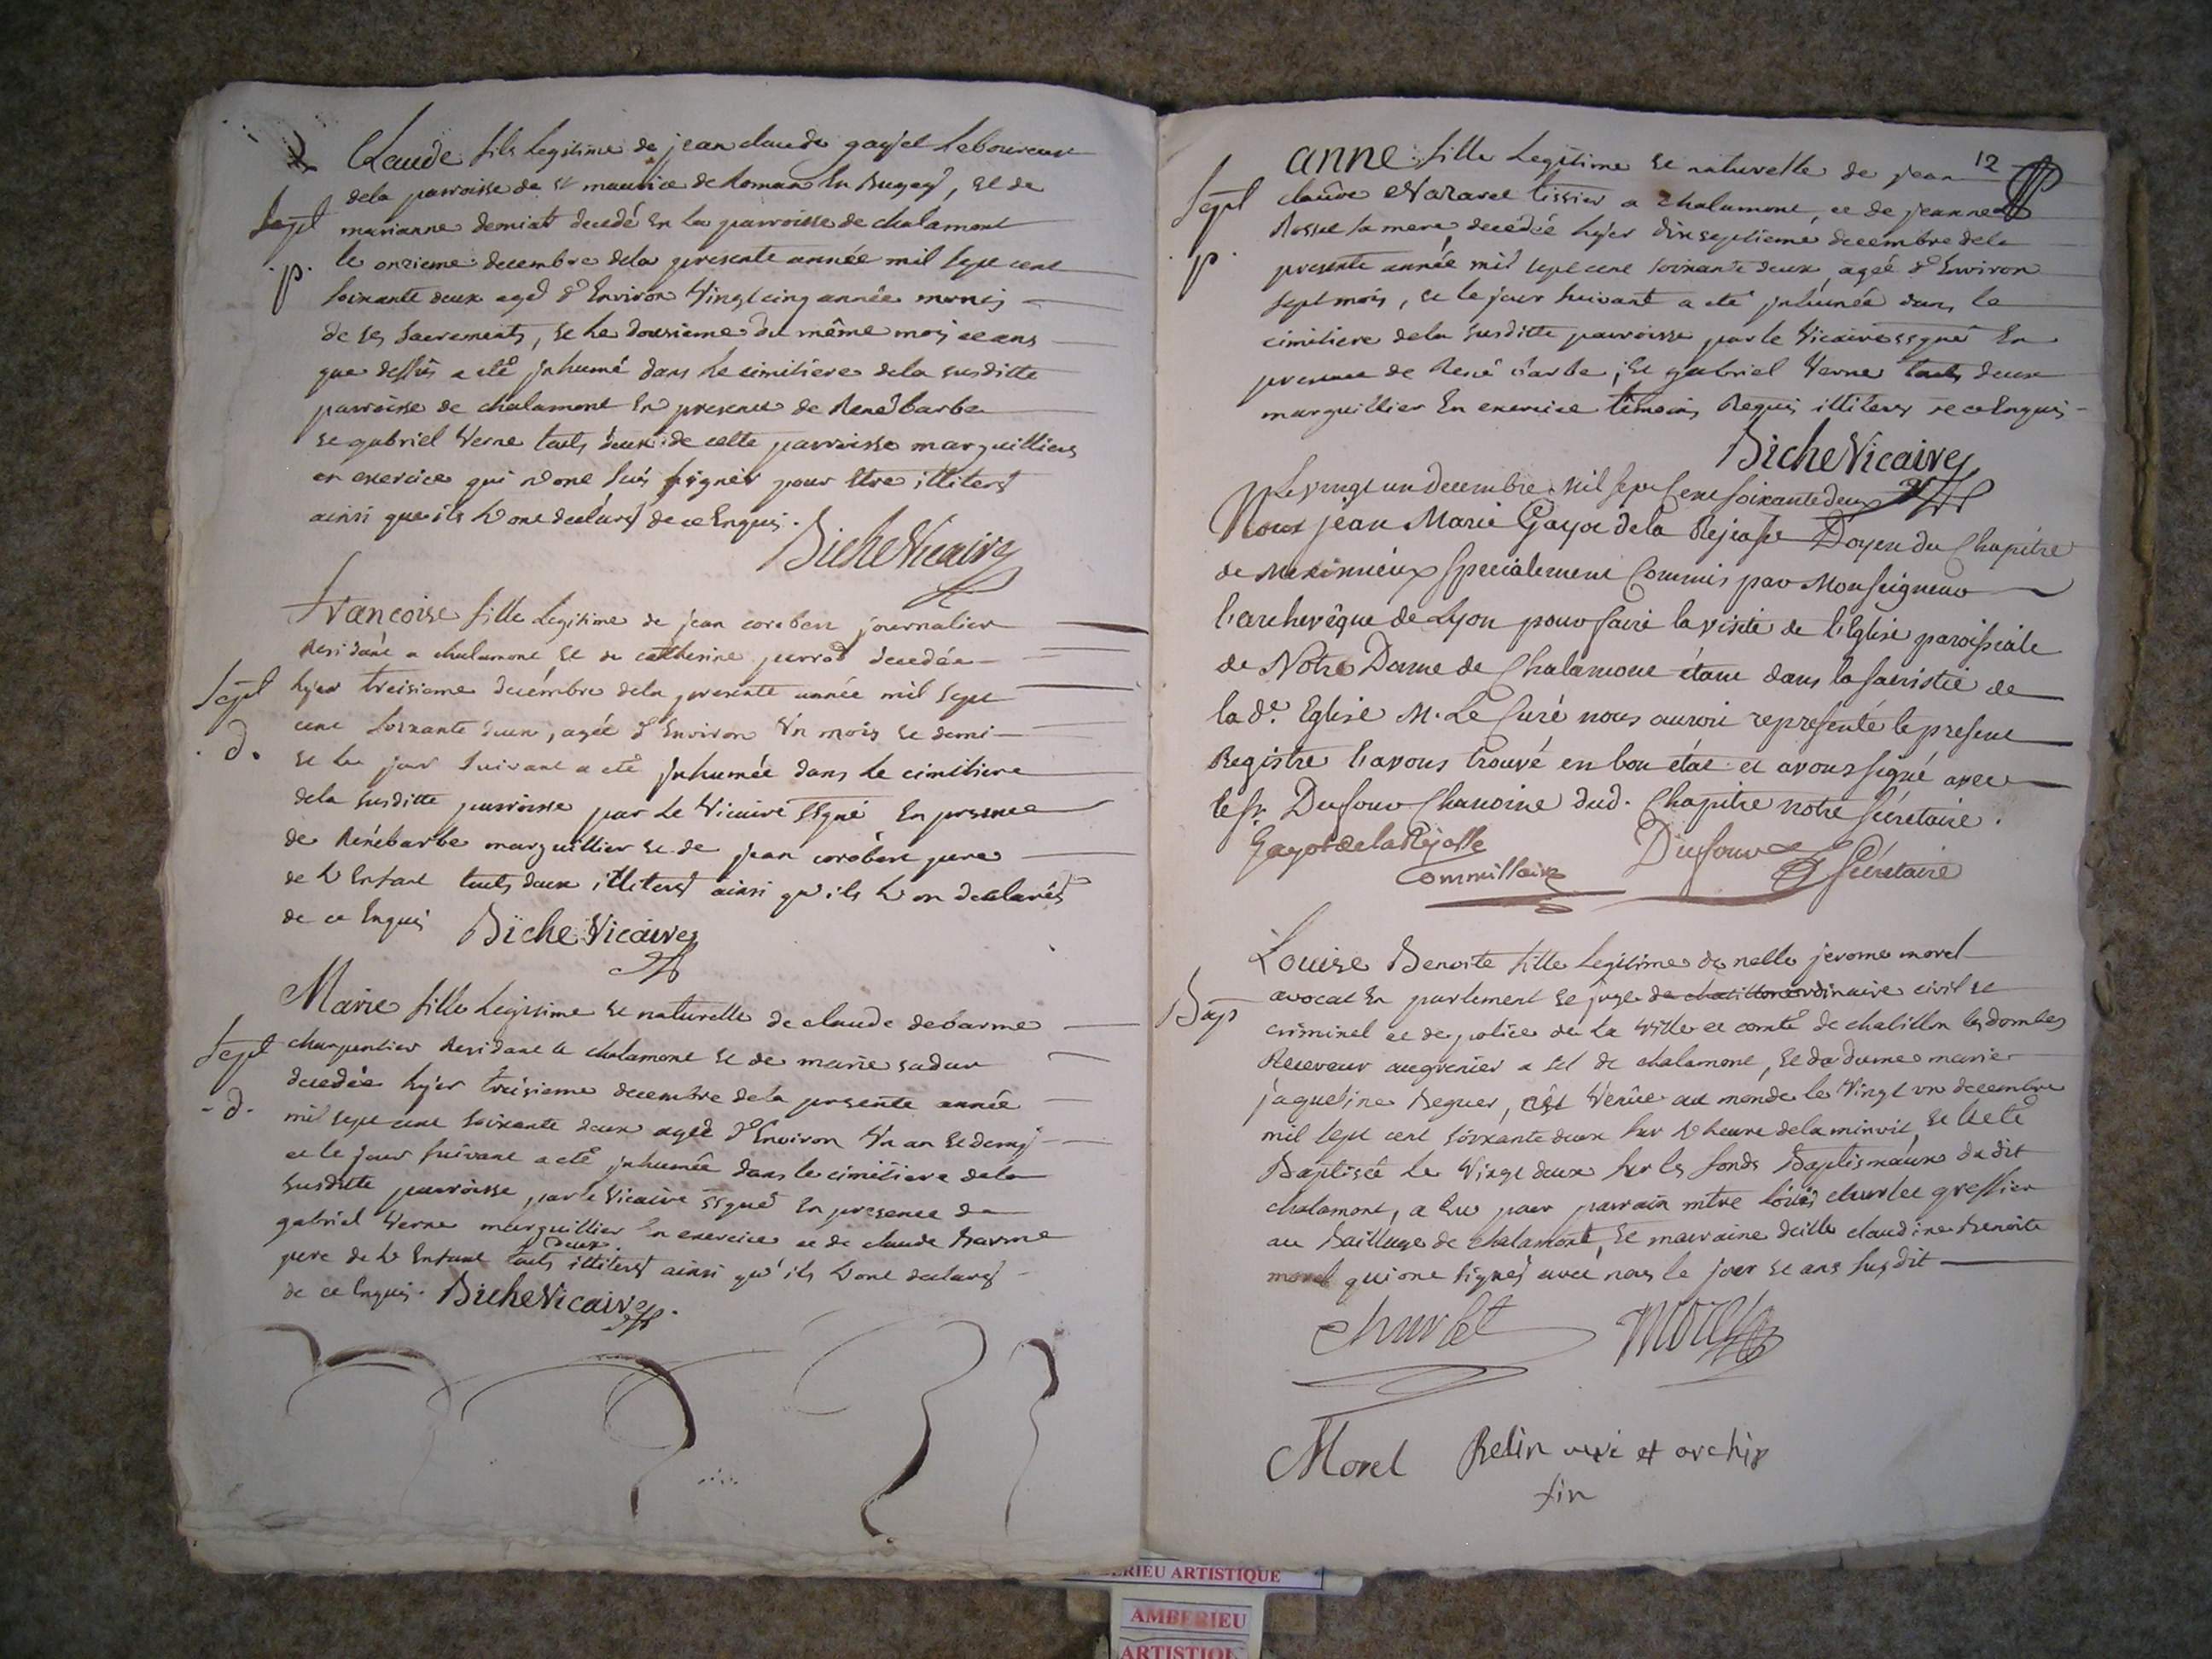 Claude fils legitime de jean claude gayet laboureur
dela parroisse de st maurice de Reman En Bugey, et de
Sept marianne demiat decedé En la parroisse de chalamont
p. le onzieme decembre dela presente année mil sept cent
soixante deux agé d'Environ Vingt cinq année munis
de ses sacrements, et le douzieme du même mois et ans
que dessus a eté jnhumé dans le cimitiere dela susditte
parroisse de chalamont En presence de René barbe
et gabriel Verne touts deux de cette parroisse marguilliers
en exercice qui n'ont sçus signer pour Etre illiterés
ainsi que ils L'ont declarés de ce Enquis.
Biche Vicaire
Françoise fille legitime de jean corobert journalier
Residant a chalamont et de catherine perrod decedée
Sept hyer treisieme decémbre dela presente année mil sept
d. cent soixante deux, agée d'Environ Vn mois et demi
et le jour suivant a eté jnhumée dans le cimitiere
dela susditte parroisse par le Vicaire ssgné En presence
de René barbe marguillier et de jean corobert pere
de L'Enfant touts deux illiterés ainsi qu'ils L'on declarés
de ce Enquis Biche Vicaire
Marie fille legitime et naturelle de claude debarme
Sept charpentier Residant a chalamont et de marie sadur
decedée hyer treisieme decembre dela presente année
d. mil sept cent soixante deux agée d'Environ Vn an et demy
et le jour suivant a eté jnhumée dans le cimitiere dela
susditte parroisse par le Vicaire ssgné En presence de
gabriel Verne marguillier En exercice et de claude Barme
deux
pere de L'Enfant touts illiterés ainsi qu'ils L'ont declarés
de ce Enquis. Biche Vicaire.
12
anne fille legitime et naturelle de jean
Sept claude tissier a chalamont, et de jeanne
Rosset sa mere, decédée hyer dixseptieme decembre dela
p. presente année mil sept cent soixante deux agée d'Environ
sept mois, et le jour suivant a eté jnhumée dans le
cimitiere dela susditte parroisse par le Vicaire ssgné En
presence de René barbe, et gabriel Verne touts deux
marguillier En exercice têmoins Requis illiterés de ce Enquis
Biche Vicaire
Le vingt un Decembre mil sept Cent soixante deux
Nous jean Marie Gayot dela Rejasse Doyen du Chapitre
de Meximieux specialement Commis par Monseigneur
l'archevêque de Lyon pour faire la visite de l'Eglise paroissiale
de Notre Dame de Chalamont étant dans la sacristie de
la de. Eglise M. Le Curé nous auroit representé le present
Registre l'avons trouvé en bon état et avons signé avec
le sr. Dufour Chanoine dud. Chapitre notre sécretaire.
Gayot dela Rejasse Dufour
Commissaire Sécretaire
Louise Benoite fille legitime de jerome morel
avocat En parlement et juge de chatillon ordinaire civil et
Bap criminel et de police de la Ville et comté de chatillon les dombes
Receveur au grenier a sel de chalamont, et de dame marie
jaqueline Beguer, est Venüe au monde le Vingt vn decembre
mil sept cent soixante deux sur L'heure dela minuit, et
Baptisée le Vingt deux sur les fonds Baptismaux du dit
chalamont, a Eu pour parrain mtre Loüis churlet greffier
au Bailliage de chalamont, et marraine dcille claudine Benoite
morel qui ont signés avec nous le jour et ans susdit
churlet Morel
Morel Belin curé et archip
fin
ERIEU ARTISTIQUE
AMBERIEU
ARTISTIQU